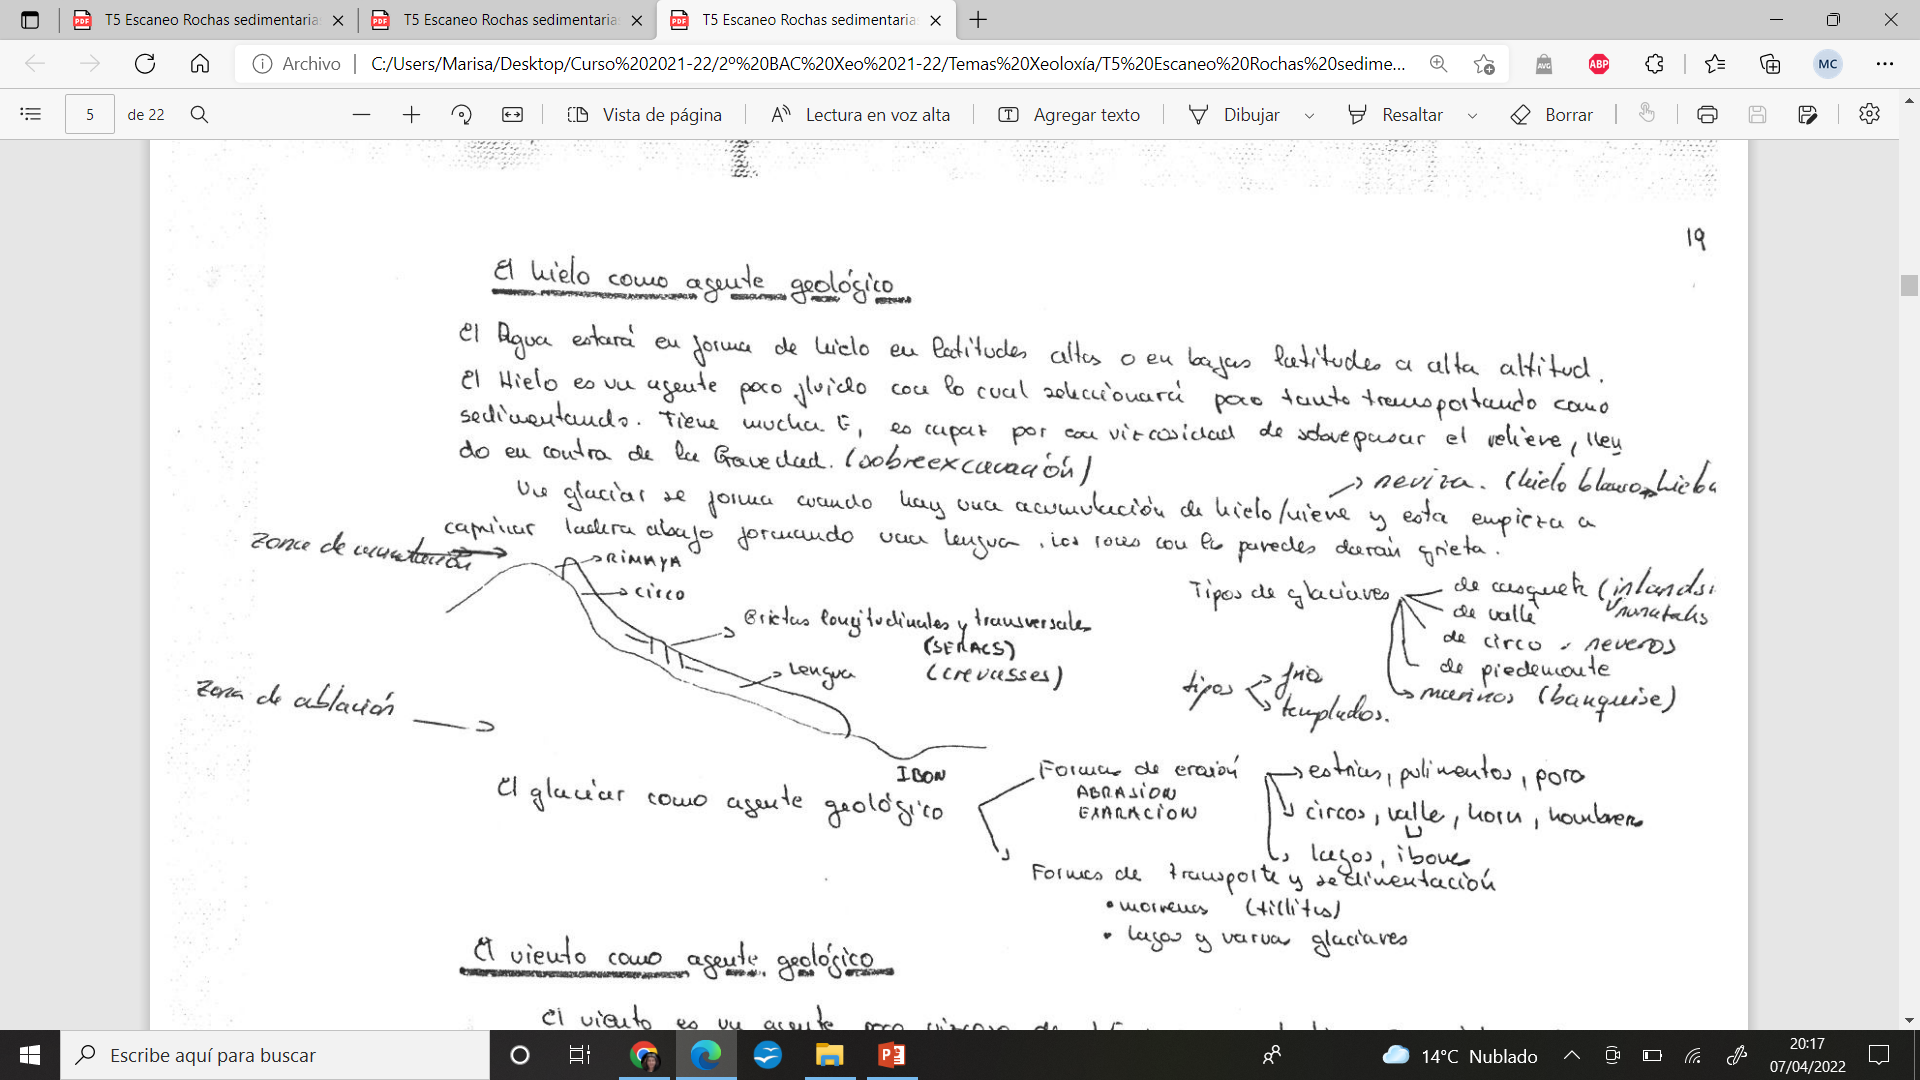 T5 Escaneo Rochas sedimentaria
T5 Escaneo Rochas sedimentaria
T5 Escaneo Rochas sedimentaria
Archivo
C:/Users/Marisa/Desktop/Curso%202021-22/2º%20BAC%20Xeo%2021-22/Temas%20Xeoloxía/T5%20Escaneo%20Rochas%20sedime...
AVG
ABP
MC
5 de 22
Vista de página
Lectura en voz alta
Agregar texto
Dibujar
Resaltar
Borrar
19
El hielo como agente geológico
El Agua estará en forma de hielo en latitudes altas o en bajas latitudes a alta altitud.
El Hielo es un agente poco fluido con lo cual seleccionará poco tanto transportando como
sedimentando. Tiene mucha E, es capaz por con viscosidad de sobrepasar el relieve, llen
do en contra de la Gravedad. (sobreexcavación)
neviza. (hielo blanco
Un glaciar se forma cuando hay una acumulación de hielo/nieve y esta empieza a
caminar ladera abajo formando una lengua. Los roces con las paredes darán grieta.
Zona de acumulación
RIMAYA
circo
Grietas longitudinales y transversales
(SERACS)
(crevasses)
Lengua
Zona de ablación
IBON
Tipos de glaciares
de casquete (inlands
nunataks
de valle
de circo. neveros
de piedemonte
marinos (banquise)
tipos
frio
templados.
El glaciar como agente geológico
Formas de erosión
ABRASION
EXARACION
estrias, pulimentos,
circos, valle, horn, hombrera
lagos, ibones
Formas de transporte y sedimentación
• morrenas (tillitas)
• lagos y varvas glaciares
El viento como agente geológico
El viento es un agente poco viscoso
Escribe aquí para buscar
14°C Nublado
20:17
07/04/2022